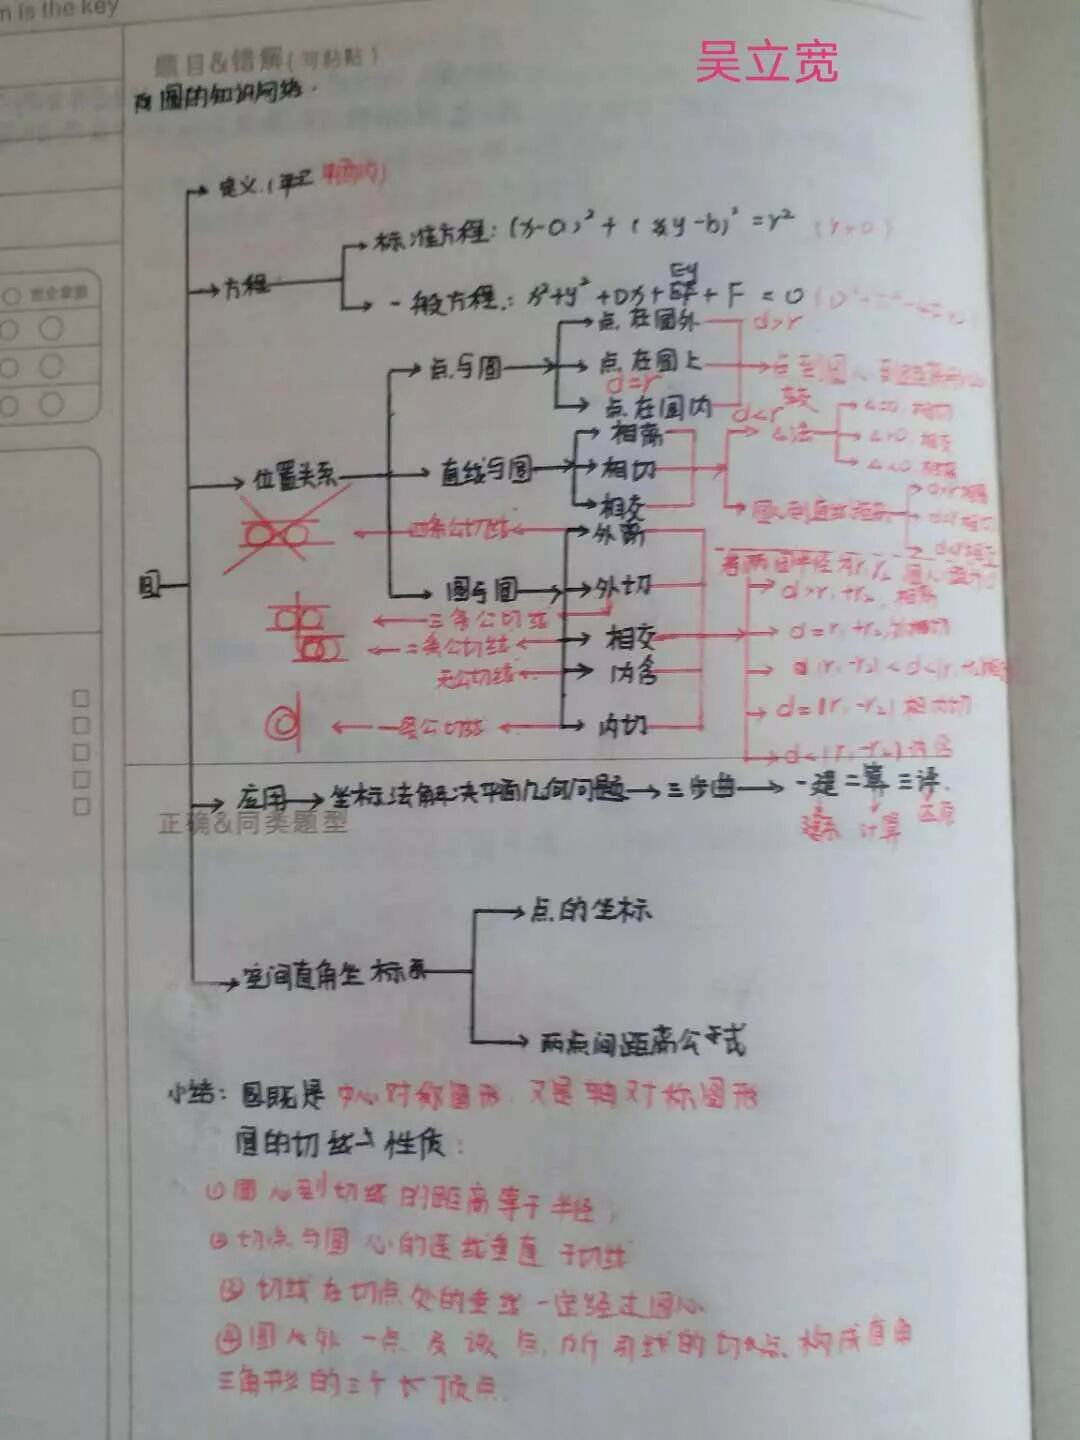 n is the key
题目&错解(可粘贴)
吴立宽
圆的知识网络.
完全掌握
定义.(平面内)
标准方程: (x-a)²+(y-b)²=r² (r>0)
方程
一般方程: x²+y²+Dx+Ey+F=0
点在圆外 d>r
点与圆
点在圆上
d=r
点在圆内 d<r
相离
△法
△=0 相切
△>0 相交
△<0 相离
位置关系
直线与圆
相切
相交
四条公切线
外离
圆
圆与圆
外切
d>r₁+r₂ 相离
三条公切线
d=r₁+r₂ 外相切
二条公切线
相交
无公切线
内含
一条公切线
内切
d=|r₁-r₂| 相内切
d<|r₁-r₂| 内含
应用
坐标法解决平面几何问题
三步曲
一建二算三译.
正确&同类题型
建系 计算 还原
点的坐标
空间直角坐标系
两点间距离公式
小结: 圆既是中心对称图形 又是轴对称图形
圆的切线 性质:
①圆心到切线的距离等于半径;
②切点与圆心的连线垂直于切线
③切线在切点处的垂线一定经过圆心
④圆 外一点及该点所引 的切点构成直角
三角形的三个 顶点.